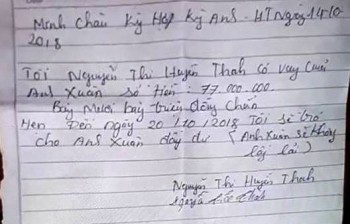 Minh Châu Kỳ Hợp Kỳ Anh - HT Ngày 14-10-
2018
Tôi Nguyễn Thị Huyền Thanh có vay của
Anh Xuân số tiền: 77.000.000.
Bảy Mươi bảy triệu đồng chẵn
Hẹn Đến ngày 20/10/2018 Tôi sẽ trả
cho Anh Xuân đầy đủ (Anh Xuân sẽ không
lấy lãi)
Nguyễn Thị Huyền Thanh
Nguyễn Thanh